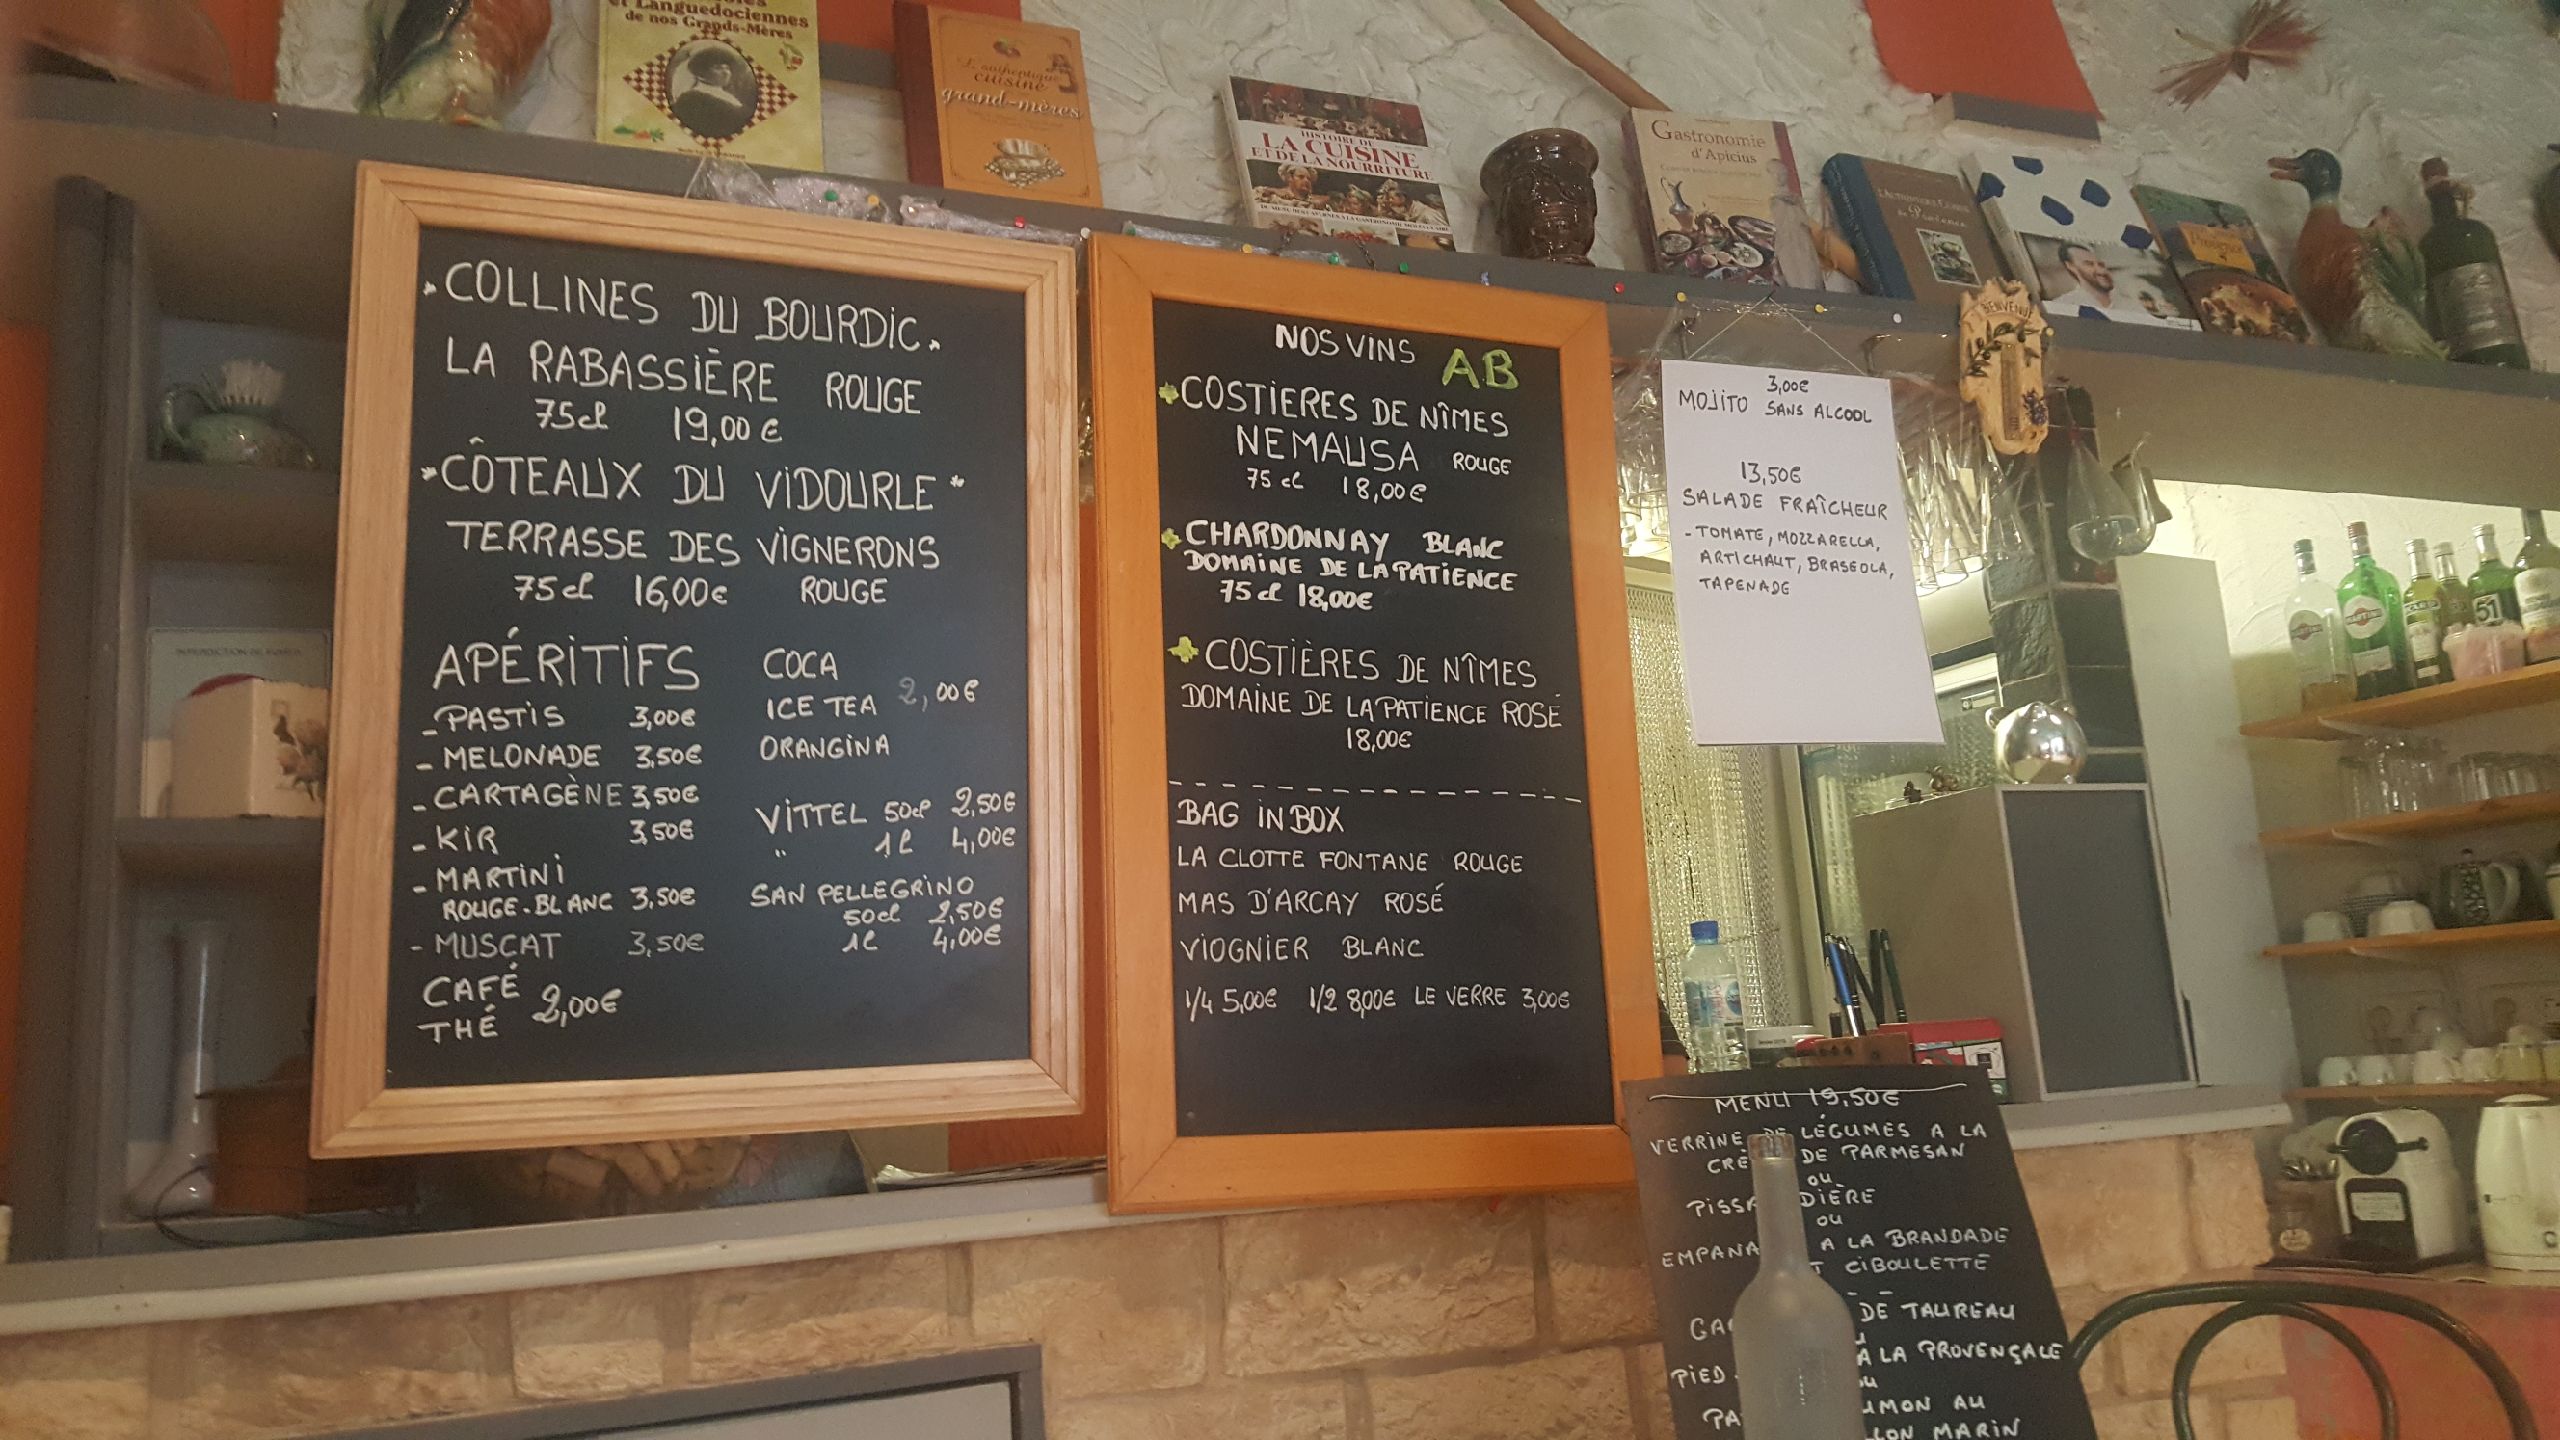 et Languedociennes
de nos Grands-Mères
L'authentique
cuisine
grand-mères
HISTOIRE DE
LA CUISINE
ET DE LA NOURRITURE
Gastronomie
d'Apicius
de Provence
BIENVENUE
*COLLINES DU BOURDIC*
LA RABASSIÈRE ROUGE
75cl 19,00€
*CÔTEAUX DU VIDOURLE*
TERRASSE DES VIGNERONS
75cl 16,00€ ROUGE
APÉRITIFS
- PASTIS 3,00€
- MELONADE 3,50€
- CARTAGÈNE 3,50€
- KIR 3,50€
- MARTINI
ROUGE-BLANC 3,50€
- MUSCAT 3,50€
CAFÉ
THÉ 2,00€
COCA
ICE TEA 2,00€
ORANGINA
VITTEL 50cl 2,50€
" 1l 4,00€
SAN PELLEGRINO
50cl 2,50€
1l 4,00€
NOS VINS AB
COSTIERES DE NÎMES
NEMAUSA ROUGE
75cl 18,00€
CHARDONNAY BLANC
DOMAINE DE LA PATIENCE
75cl 18,00€
COSTIÈRES DE NÎMES
DOMAINE DE LA PATIENCE ROSÉ
18,00€
BAG IN BOX
LA CLOTTE FONTANE ROUGE
MAS D'ARCAY ROSÉ
VIOGNIER BLANC
1/4 5,00€ 1/2 8,00€ LE VERRE 3,00€
3,00€
MOJITO SANS ALCOOL
13,50€
SALADE FRAÎCHEUR
- TOMATE, MOZZARELLA,
ARTICHAUT, BRASEOLA,
TAPENADE
MARTINI
51
MENU 19,50€
VERRINE DE LÉGUMES A LA
CRÈ DE PARMESAN
ou
PISSA DIÈRE
ou
EMPANA A LA BRANDADE
T CIBOULETTE
GA DE TAUREAU
PIED A LA PROVENÇALE
ou
PA UMON AU
LLON MARIN